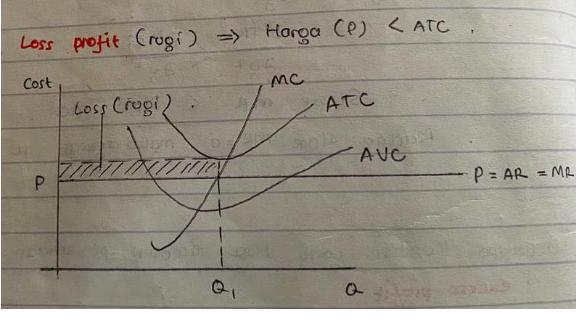 Loss profit (rugi) ⇒ Harga (P) < ATC .
Cost
MC
Loss (rugi) .
ATC
AVC
P
P = AR = MR
Q₁
Q